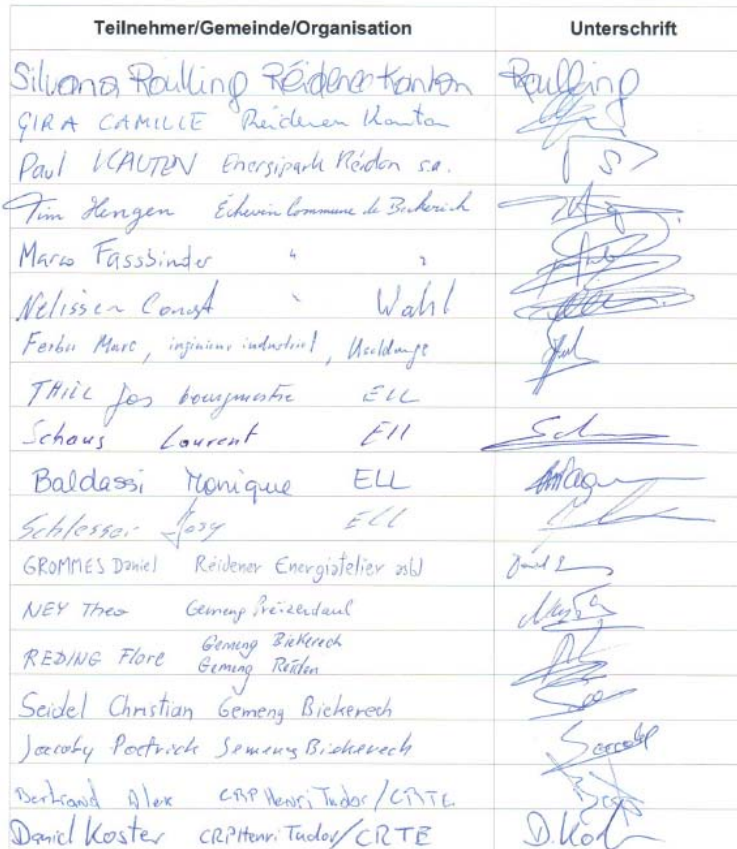 Teilnehmer/Gemeinde/Organisation Unterschrift
Silvana Roulling Réidener Kanton Roulling
GIRA CAMILLE Reidener Kanton
Paul KAUTEN Energipark Réiden s.a.
Tim Hengen Échevin Commune de Beckerich
Marco Fassbinder " "
Nelissen Const " Wahl
Ferber Marc, ingénieur industriel, Useldange
THILL Jos bourgmestre ELL
Schaus Laurent Ell
Baldassi Monique ELL
Schlesser Josy ELL
GROMMES Daniel Réidener Energiatelier asbl
NEY Theo Gemeng Préizerdaul
REDING Flore Gemeng Biekerech
Gemeng Réiden
Seidel Christian Gemeng Biekerech
Jacoby Patrick Gemeng Biekerech
Bertrand Alex CRP Henri Tudor/CRTE
Daniel Koster CRP Henri Tudor/CRTE